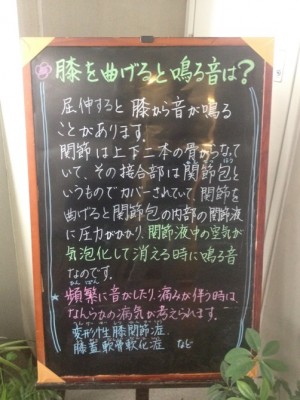 膝を曲げると鳴る音は?
屈伸すると膝から音が鳴る
ことがあります。
関節は上下二本の骨からなって
いて、その接合部は関節包と
いうものでカバーされていて関節を
曲げると関節包の内部の関節液
に圧力がかかり、関節液中の空気が
気泡化して消える時に鳴る音
なのです。
★頻繁に音がしたり、痛みが伴う時は、
なんらかの病気が考えられます。
変形性膝関節症
膝蓋軟骨軟化症 など